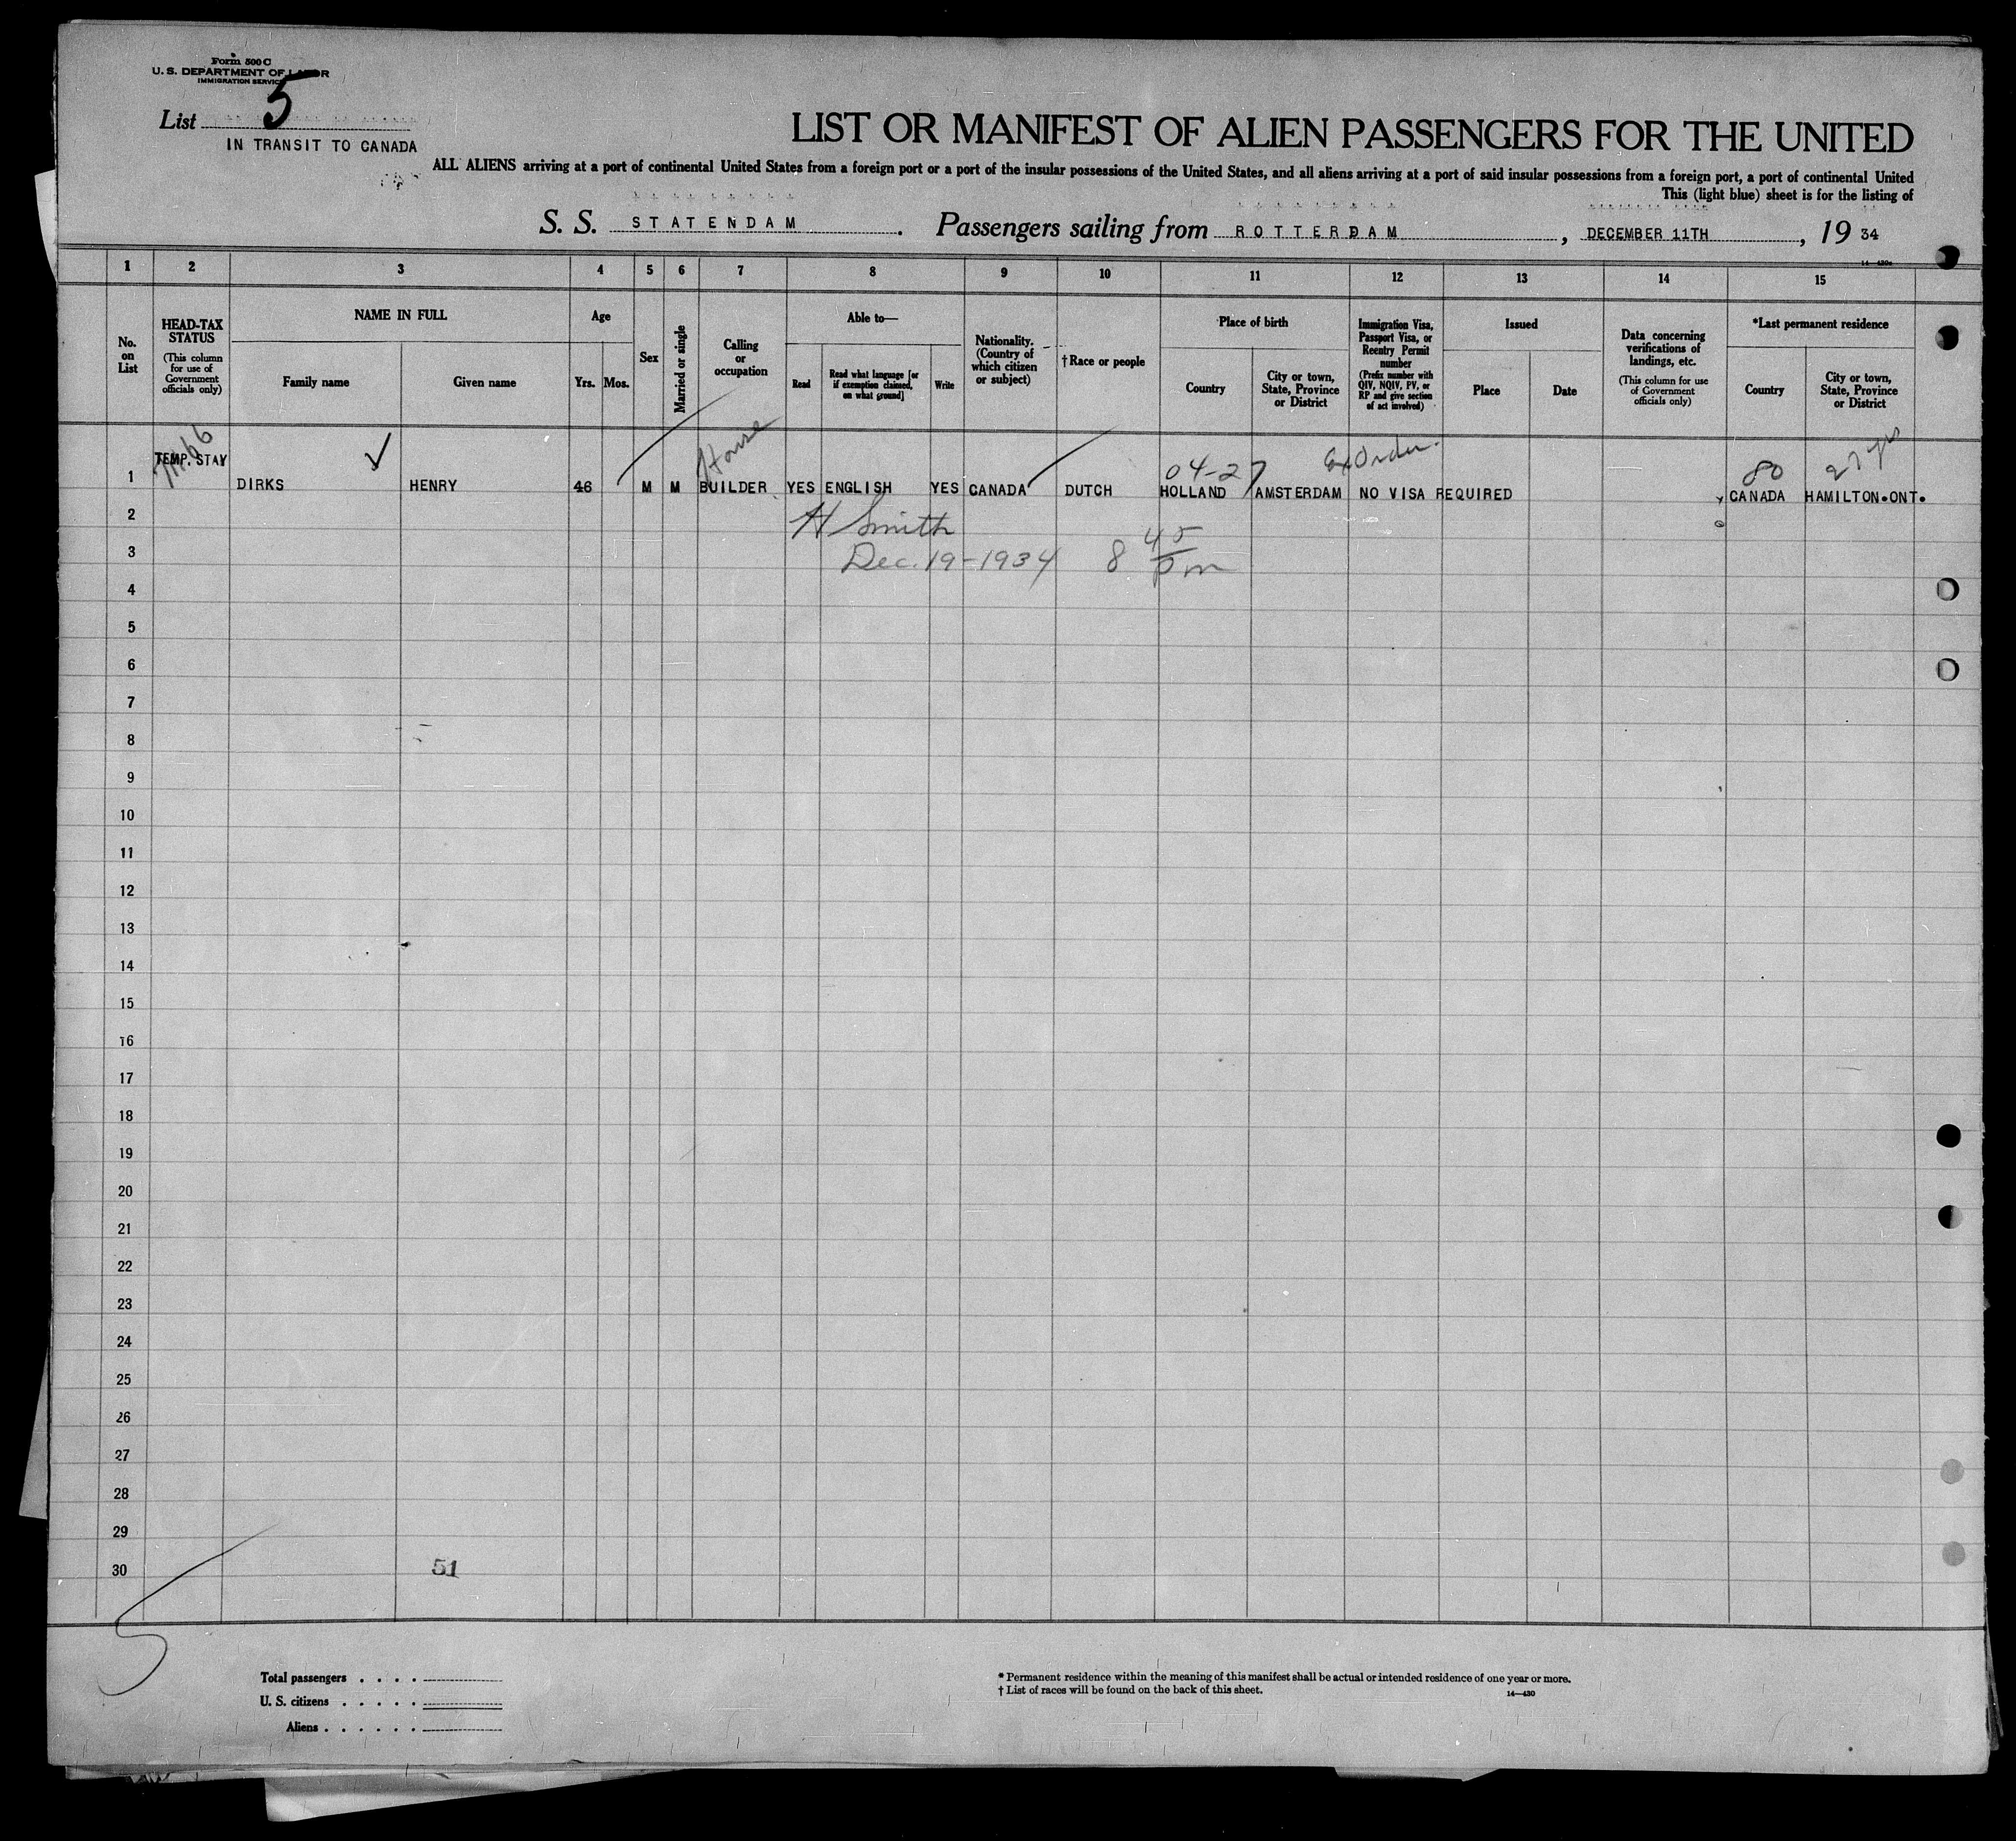 Form 500 C
U. S. DEPARTMENT OF LABOR
IMMIGRATION SERVICE
List 5
IN TRANSIT TO CANADA
LIST OR MANIFEST OF ALIEN PASSENGERS FOR THE UNITED
ALL ALIENS arriving at a port of continental United States from a foreign port or a port of the insular possessions of the United States, and all aliens arriving at a port of said insular possessions from a foreign port, a port of continental United
This (light blue) sheet is for the listing of
S. S. STATENDAM. Passengers sailing from ROTTERDAM, DECEMBER 11TH, 19 34
1 2 3 4 5 6 7 8 9 10 11 12 13 14 15
No. on List
HEAD-TAX STATUS
(This column for use of Government officials only)
NAME IN FULL
Family name
Given name
Age
Yrs. Mos.
Sex
Married or single
Calling or occupation
Able to—
Read
Read what language [or if exemption claimed, on what ground]
Write
Nationality. (Country of which citizen or subject)
†Race or people
Place of birth
Country
City or town, State, Province or District
Immigration Visa, Passport Visa, or Reentry Permit number
(Prefix number with QIV, NQIV, PV, or RP and give section of act involved)
Issued
Place
Date
Data concerning verifications of landings, etc.
(This column for use of Government officials only)
*Last permanent residence
Country
City or town, State, Province or District
TEMP. STAY House 04-27 Ex Order. 80 27 yrs
1 DIRKS HENRY 46 M M BUILDER YES ENGLISH YES CANADA DUTCH HOLLAND AMSTERDAM NO VISA REQUIRED CANADA HAMILTON.ONT.
2 H Smith
3 Dec. 19-1934 8 45 pm
4
5
6
7
8
9
10
11
12
13
14
15
16
17
18
19
20
21
22
23
24
25
26
27
28
29
30 51
Total passengers . . . .
U. S. citizens . . . . .
Aliens . . . . . .
* Permanent residence within the meaning of this manifest shall be actual or intended residence of one year or more.
† List of races will be found on the back of this sheet.
14—430